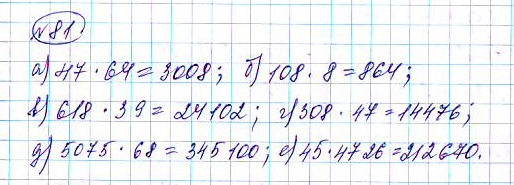 №81
а) 47 · 64 = 3008; б) 108 · 8 = 864;
в) 618 · 39 = 24102; г) 308 · 47 = 14476;
д) 5075 · 68 = 345100; е) 45 · 4726 = 212670.